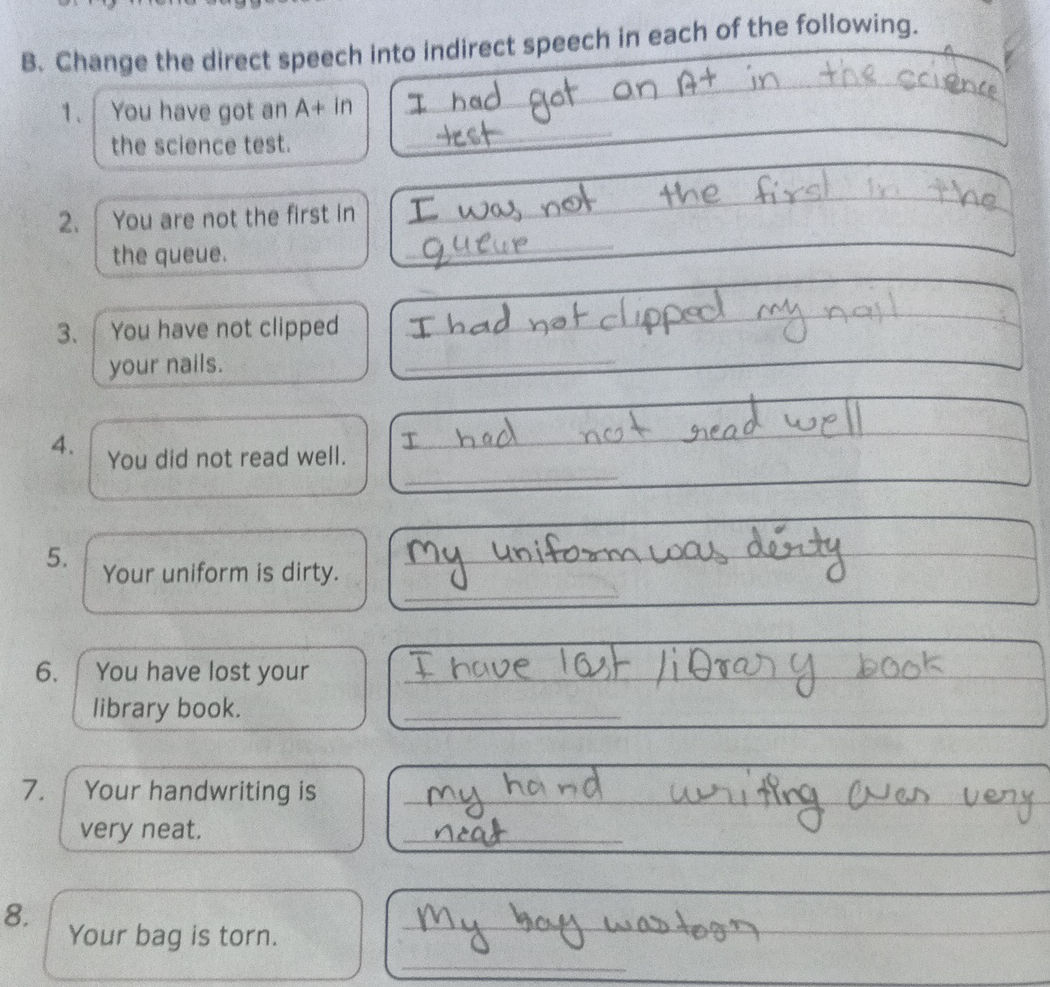 B. Change the direct speech into indirect speech in each of the following.
1. You have got an A+ in
the science test.
I had got an A+ in the science
test
2. You are not the first in
the queue.
I was not the first in the
queue
3. You have not clipped
your nails.
I had not clipped my nail
4. You did not read well.
I had not read well
5. Your uniform is dirty.
My uniform was dirty
6. You have lost your
library book.
I have lost library book
7. Your handwriting is
very neat.
my hand writing was very
neat
8. Your bag is torn.
My bag was torn